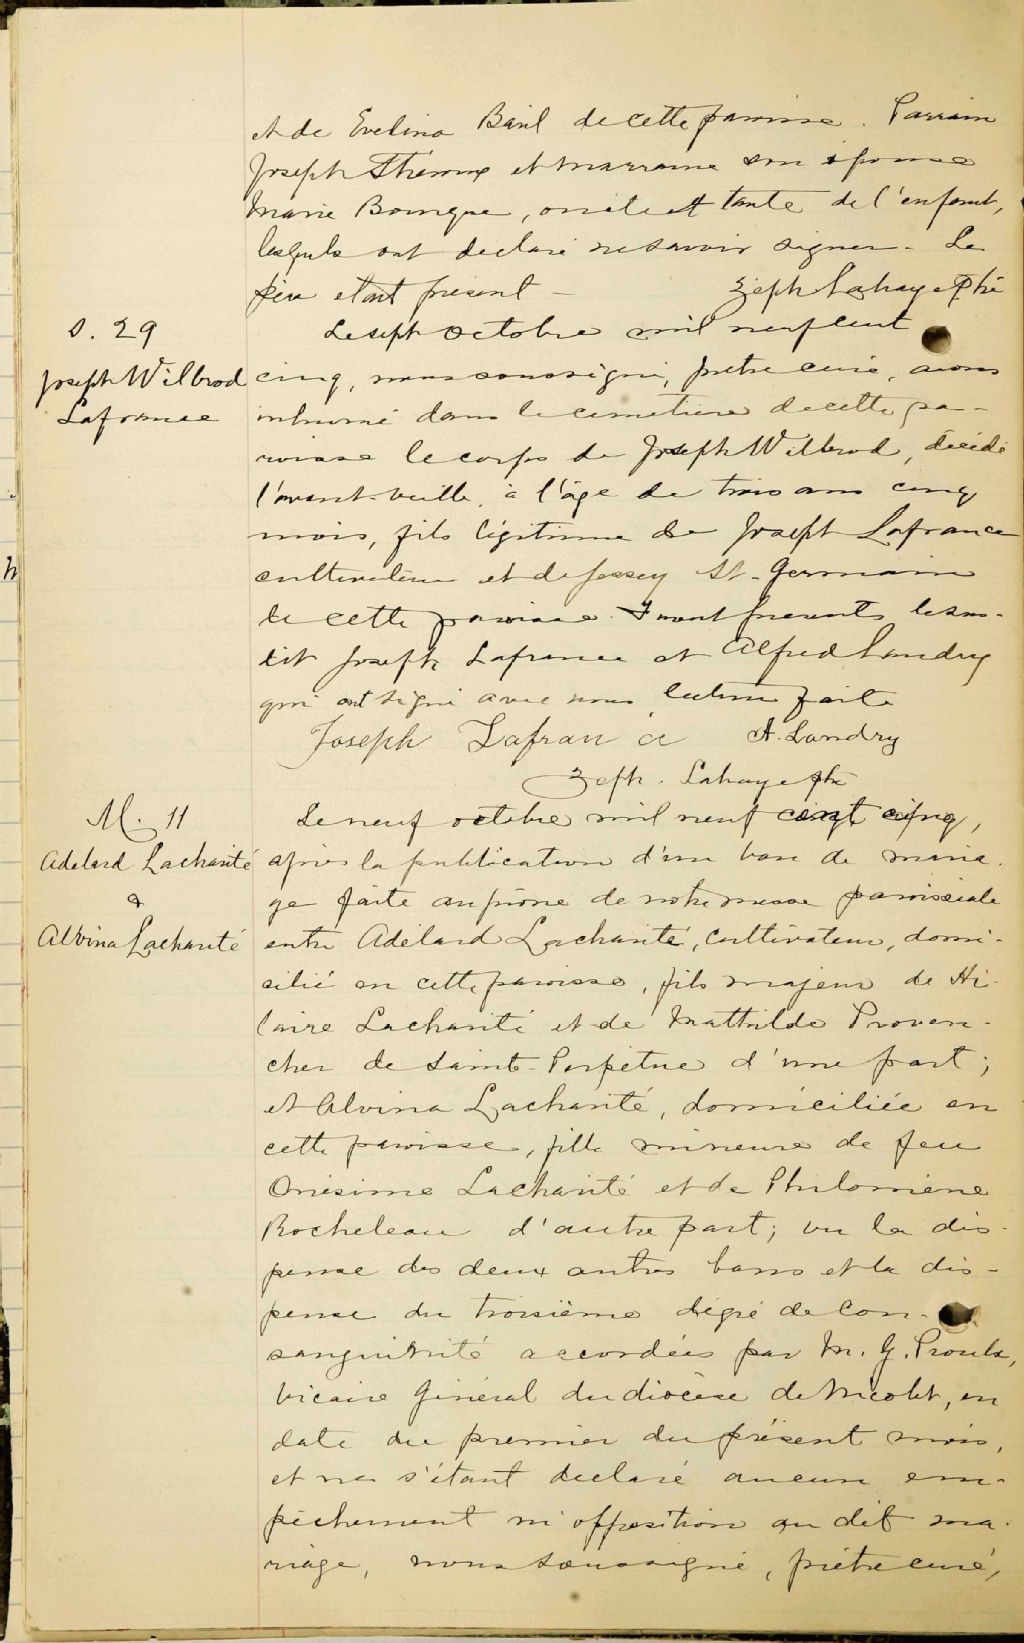 et de Evelina Baril de cette paroisse. Parrain
Joseph Théroux et marraine son épouse
Marie Bourque, oncle et tante de l'enfant,
lesquels ont déclaré ne savoir signer. Le
père étant présent — Zéph Lahaye Ptre
S. 29
Joseph Wilbrod
Lafrance
Le sept octobre mil neuf cent
cinq, nous soussigné, prêtre curé, avons
inhumé dans le cimetière de cette pa-
roisse le corps de Joseph Wilbrod, décédé
l'avant-veille, à l'âge de trois ans cinq
mois, fils légitime de Joseph Lafrance
cultivateur et de St-Germain
de cette paroisse. présents le sus-
dit Joseph Lafrance et Alfred Landry
qui ont signé avec nous, lecture faite
Joseph Lafrance A. Landry
Zéph. Lahaye ptre
M. 11
Adélard Lacharité
&
Alvina Lacharité
Le neuf octobre mil neuf cent cinq,
après la publication d'un ban de maria-
ge faite au prône de notre messe paroissiale
entre Adélard Lacharité, cultivateur, domi-
cilié en cette paroisse, fils majeur de Hi-
laire Lacharité et de Mathilde Proven-
cher de Sainte-Perpétue d'une part;
et Alvina Lacharité, domiciliée en
cette paroisse, fille mineure de feu
Onésime Lacharité et de Philomène
Rocheleau d'autre part; vu la dis-
pense des deux autres bans et la dis-
pense du troisième dégré de con-
sanguinité accordées par M. G. Proulx,
Vicaire Général du diocèse de Nicolet, en
date du premier du présent mois,
et ne s'étant déclaré aucun em-
pêchement ni opposition au dit ma-
riage, nous soussigné, prêtre curé,